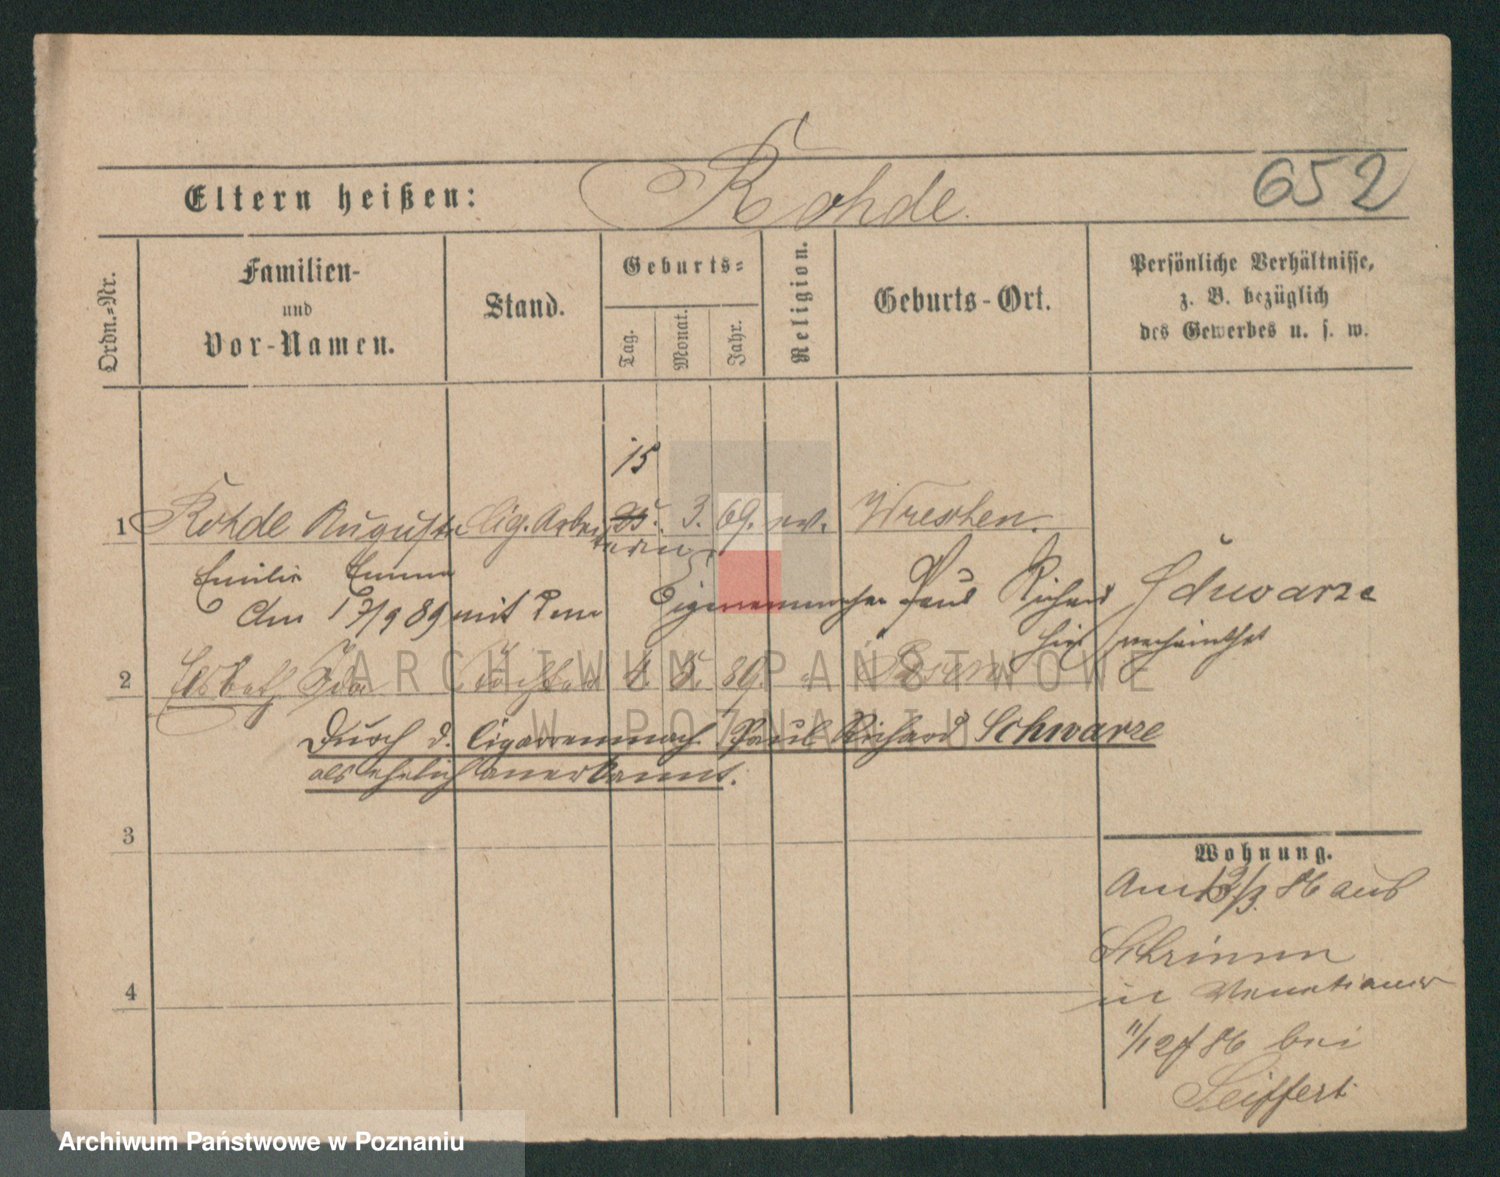 Eltern heißen: Rohde. 652
Ordn.-Nr.
Familien-
und
Vor-Namen.
Stand.
Geburts-
Tag.
Monat.
Jahr.
Religion.
Geburts-Ort.
Persönliche Verhältnisse,
z. B. bezüglich
des Gewerbes u. s. w.
15
1 Rohde Auguste Cig. Arbei 25. 3. 69. ev. Wreschen.
terin
Emilie Emma
Am 17/9 89 mit dem Cigarrenmacher Paul Richard Schwarze
hier verheirathet
2 Elsbeth Ida Tochter 4. 5. 89. Posen
ARCHIWUM PAŃSTWOWE
W POZNANIU
Durch d. Cigarrenmach. Paul Richard Schwarze
als ehelich anerkannt.
3
4
Wohnung.
Am 13/3. 86 aus
Schrimm
in Venetianer
11/12 86 bei
Seiffert
Archiwum Państwowe w Poznaniu